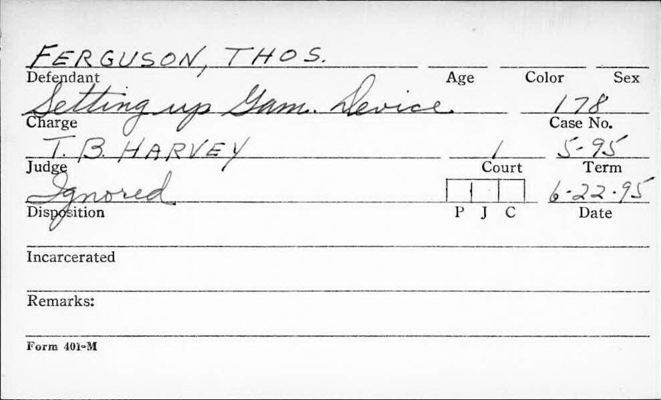 FERGUSON, THOS.
Defendant Age Color Sex
Setting up Gam. Device 178
Charge Case No.
T. B. HARVEY 1 5-95
Judge Court Term
Ignored 6-22-95
Disposition P J C Date
Incarcerated
Remarks:
Form 401-M